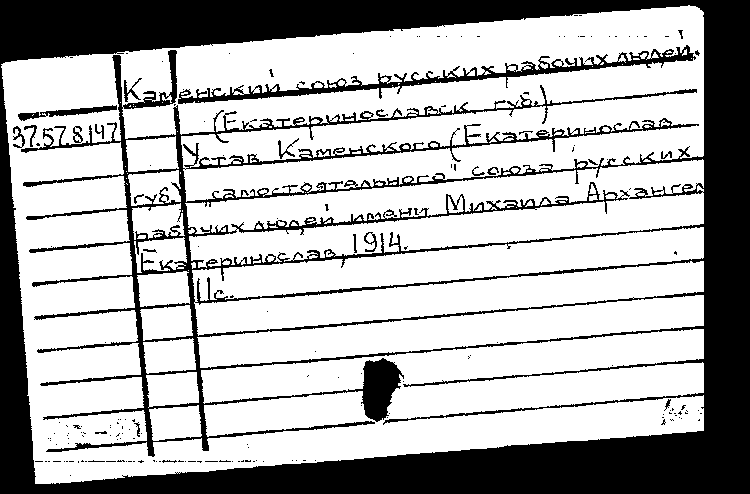 Каменский союз русских рабочих людей.
(Екатеринославск. губ.).
37.57.8.147
Устав Каменского (Екатеринослав.
губ.) "самостоятельного" союза русских
рабочих людей имени Михаила Архангел
Екатеринослав, 1914.
11с.